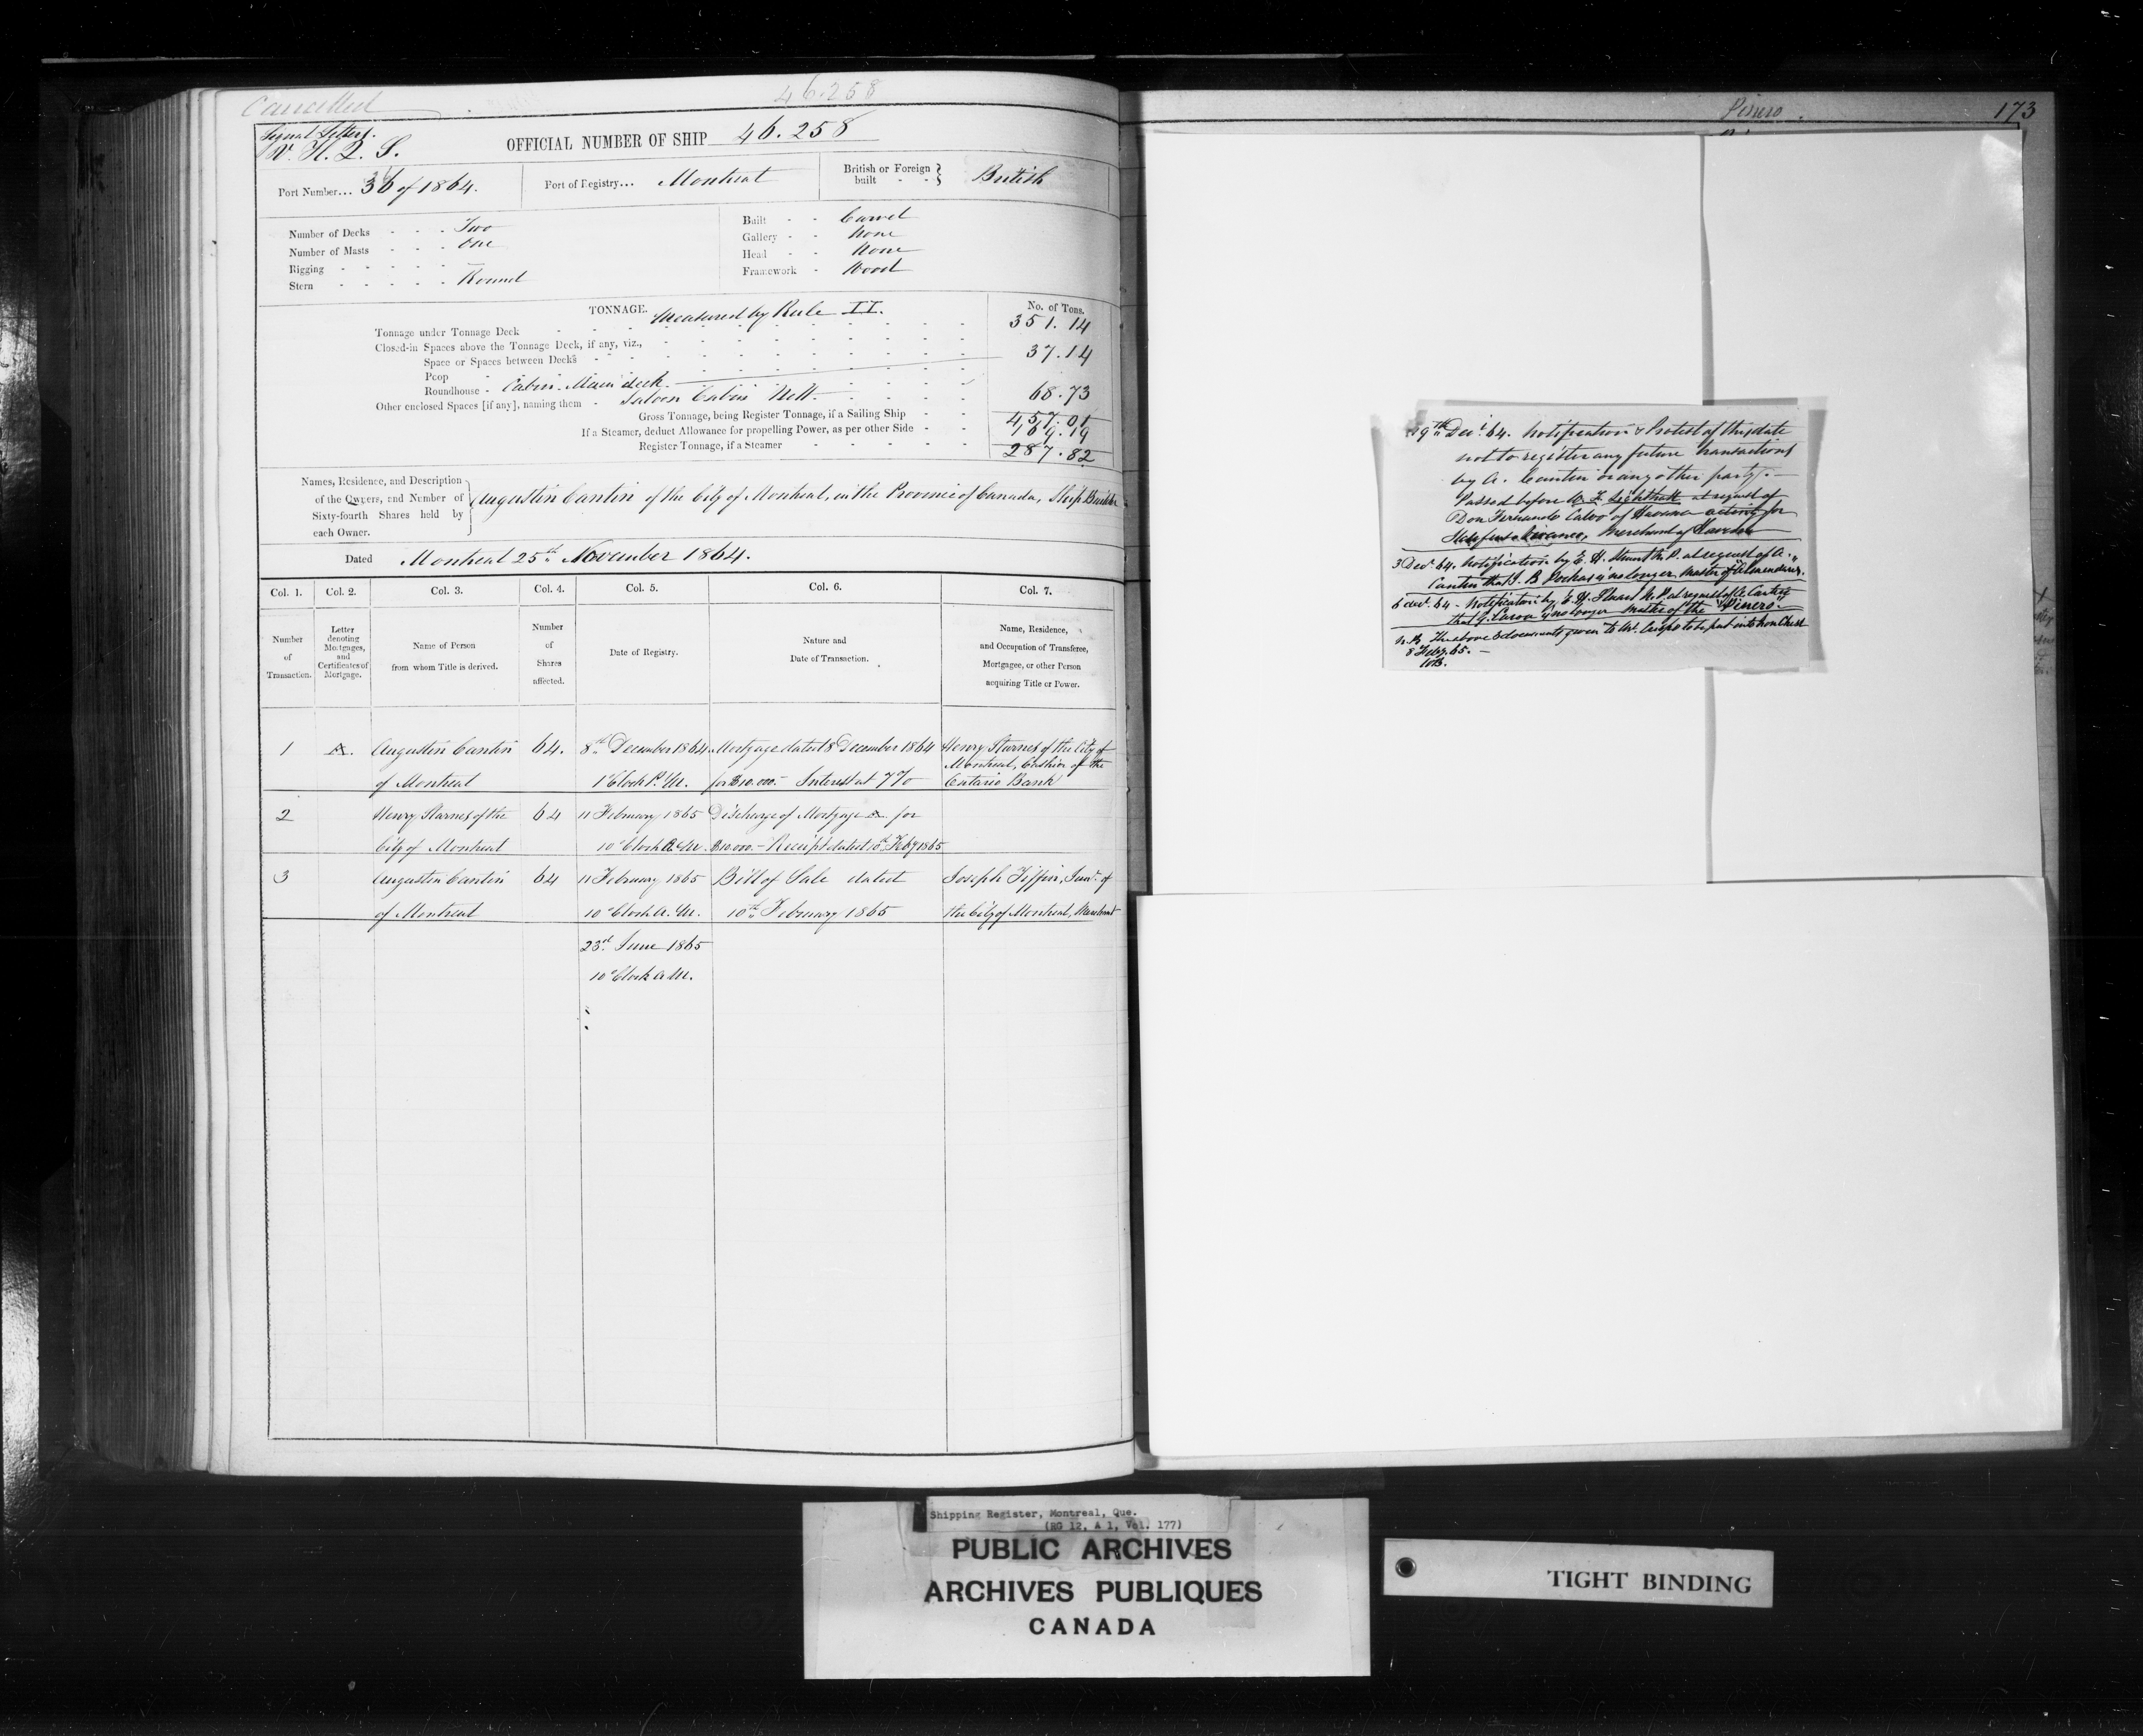 Cancelled
46.258
Signal Letters.
V. H. Q. S.
OFFICIAL NUMBER OF SHIP 46.258
Port Number... 36 of 1864.
Port of Registry... Montreal
British or Foreign built - - } British
Number of Decks - - - Two
Number of Masts - - - One
Rigging - - - - -
Stern - - - - - Round
Built - - Carvel
Gallery - - None
Head - - None
Framework - Wood
TONNAGE. Measured by Rule II.
No. of Tons.
Tonnage under Tonnage Deck 351.14
Closed-in Spaces above the Tonnage Deck, if any, viz.,
Space or Spaces between Decks 37.14
Poop
Roundhouse - Cabin Main deck
Other enclosed Spaces [if any], naming them - Saloon Cabin 68.73
Gross Tonnage, being Register Tonnage, if a Sailing Ship - - 457.01
If a Steamer, deduct Allowance for propelling Power, as per other Side - - 169.19
Register Tonnage, if a Steamer 287.82
Names, Residence, and Description
of the Owners, and Number of
Sixty-fourth Shares held by
each Owner.
Augustin Cantin of the City of Montreal, in the Province of Canada, Ship Builder
Dated Montreal 25th November 1864.
Col. 1. Col. 2. Col. 3. Col. 4. Col. 5. Col. 6. Col. 7.
Number of Transaction.
Letter denoting Mortgages, and Certificates of Mortgage.
Name of Person from whom Title is derived.
Number of Shares affected.
Date of Registry.
Nature and Date of Transaction.
Name, Residence, and Occupation of Transferee, Mortgagee, or other Person acquiring Title or Power.
1 A. Augustin Cantin 64. 8th December 1864 Mortgage dated 8 December 1864 Henry Starnes of the City of
Montreal, Cashier of the
of Montreal 1 o'Clock P.M. for $10.000.- Interest at 7% Ontario Bank
2 Henry Starnes of the 64 11 February 1865 Discharge of Mortgage A. for
City of Montreal 10 o'Clock A.M. $10.000.- Receipt dated 10th Feby 1865
3 Augustin Cantin 64 11 February 1865 Bill of Sale dated Joseph Tiffin, Junr. of
of Montreal 10 o'Clock A.M. 10th February 1865 the City of Montreal, Merchant
23rd June 1865
10 o'Clock A.M.
Pinero
173
9th Decr. 64. Notification & Protest of this date
not to register any future transactions
by A. Cantin or any other party. -
Passed before W. F. Lighthall at request of
Don Fernando Calvo of Havana acting for
Merchant of Havana
3 Decr. 64. Notification by E. H. Stuart N.P. at request of A.
Cantin that J. B. is no longer Master of "Almendares."
6 Decr. 64 - Notification by E. H. Stuart N.P. at request of A. Cantin
that G. Caron is no longer Master of the "Pinero."
N.B. The above 3 documents given to Mr. to be put into Iron Chest
8 Feby. 65. -
Shipping Register, Montreal, Que.
(RG 12, A 1, Vol. 177)
PUBLIC ARCHIVES
ARCHIVES PUBLIQUES
CANADA
TIGHT BINDING